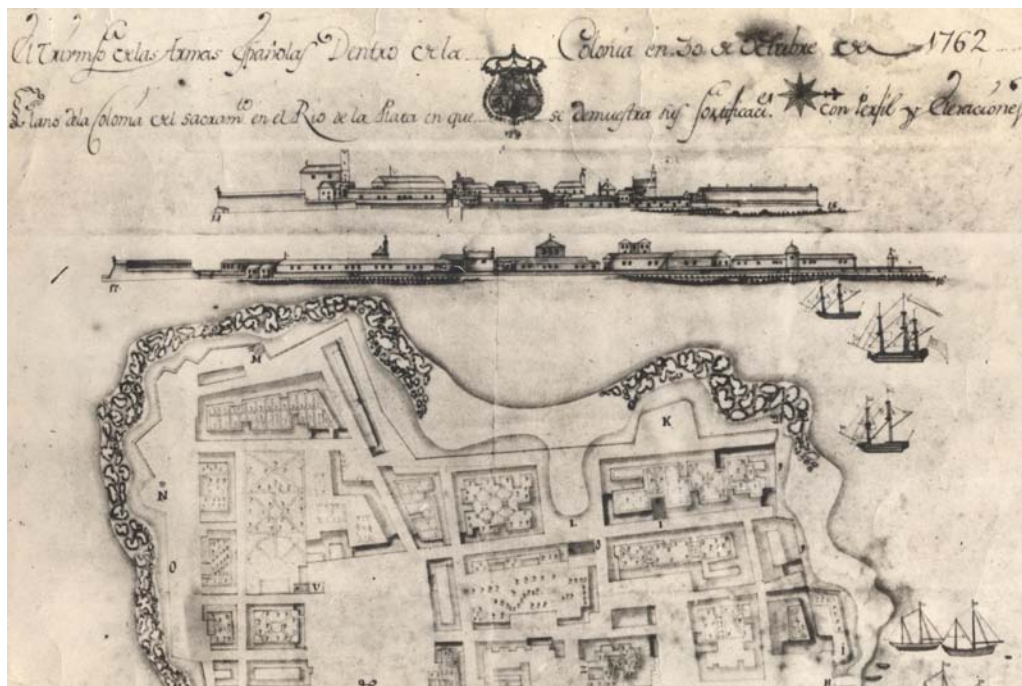 El Triumfo de las Armas Españolas Dentro de la Colonia en 30 de Octubre de 1762
Plano de la Colonia del sacram.to en el Rio de la Plata en que se demuestra sus fortificaci.es con Perfil y Elevaciones
18
17
M
K
N
L
I
O
V
H